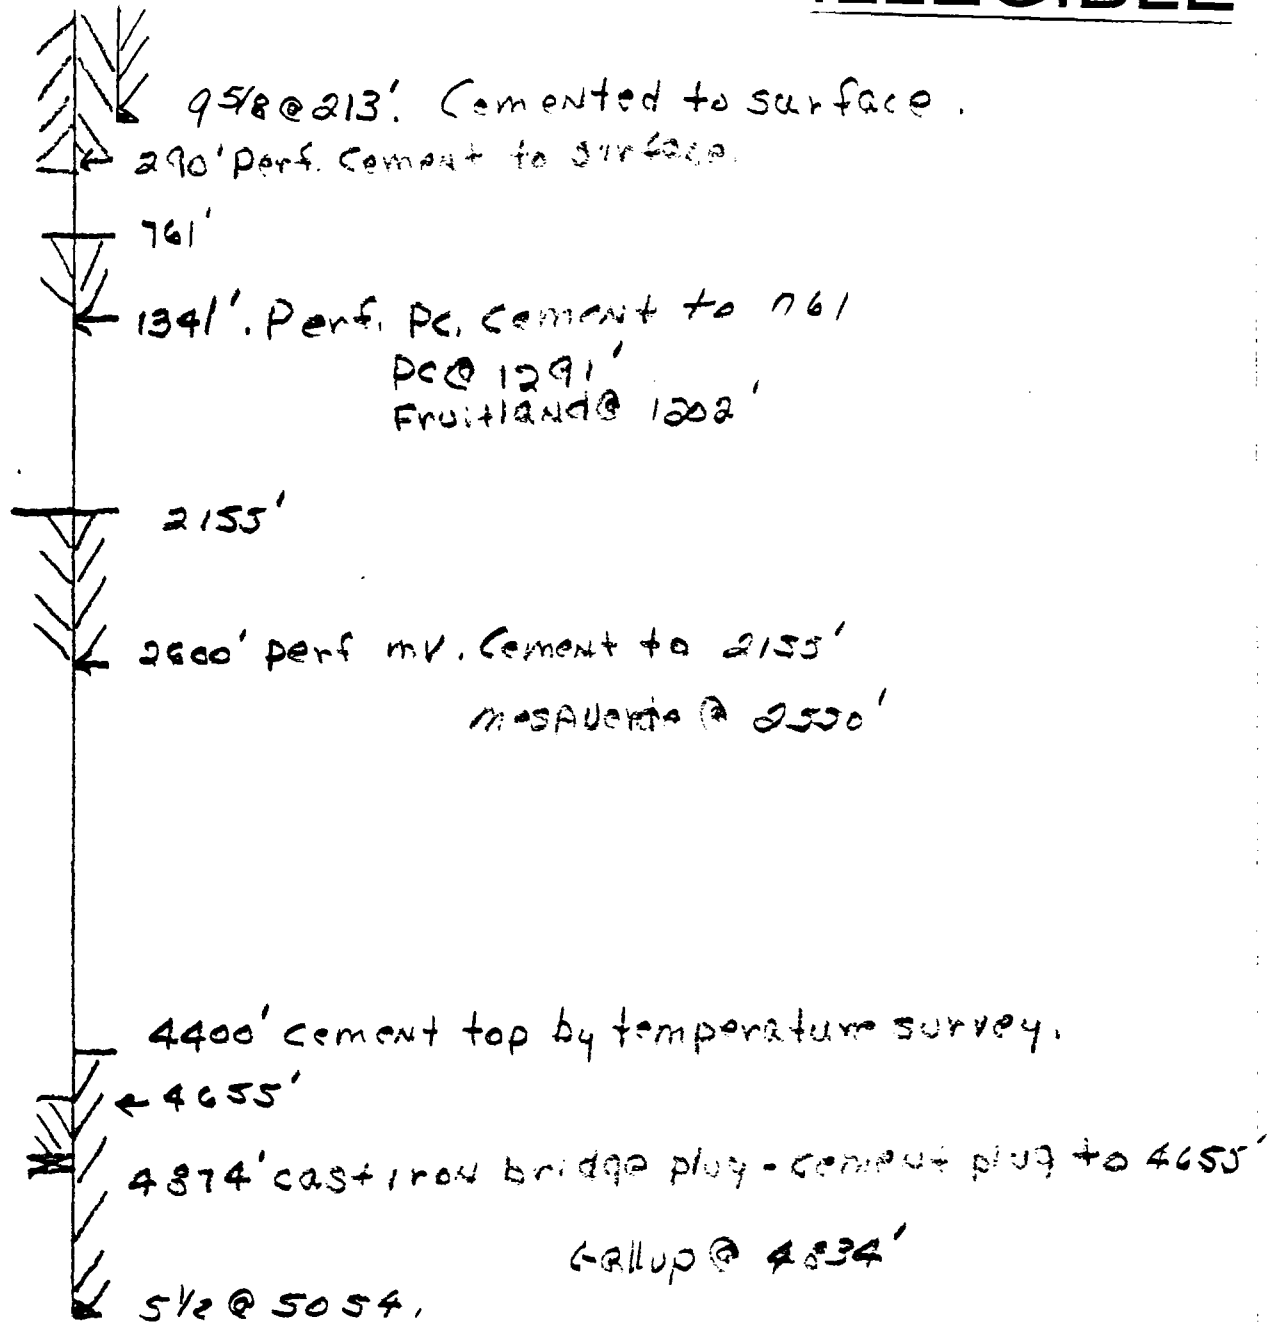 ILLEGIBLE
9 5/8 @ 213'. Cemented to surface.
290' Perf. Cement to surface.
761'
1341'. Perf. PC. Cement to 761
PC @ 1291'
Fruitland @ 1202'
2155'
2600' perf MV. Cement to 2155'
Mesaverde @ 2550'
4400' cement top by temperature survey.
4655'
4874' cast iron bridge plug - cement plug to 4655'
Gallup @ 4834'
5 1/2 @ 5054.